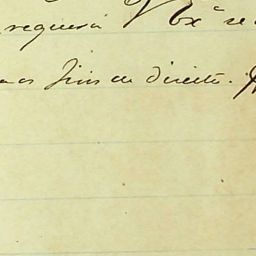 requerá V Exª se
os fins de direito.